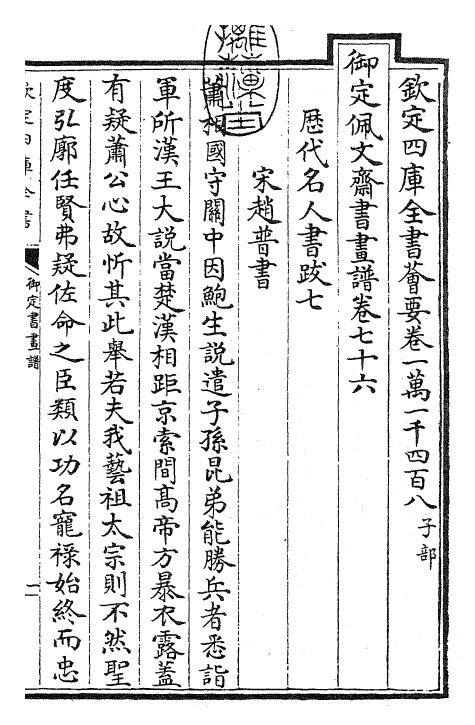 欽定四庫全書薈要卷一萬一千四百八 子部
御定佩文齋書畫譜卷七十六
歴代名人書跋七
宋趙普書
蕭相國守關中因鮑生説遣子孫昆弟能勝兵者悉詣
軍所漢王大説當楚漢相距京索間髙帝方暴衣露蓋
有疑蕭公心故忻其此舉若夫我藝祖太宗則不然聖
度弘廓任賢弗疑佐命之臣類以功名寵禄始終而忠
欽定四庫全書
御定書畫譜
一